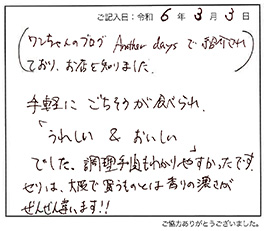 ご記入日：令和 6 年 3 月 3 日
（ワンちゃんのブログ Another days で紹介されて
おり、お店を知りました。）
手軽に ごちそうが食べられ、
「うれしい & おいしい」
でした。調理手順もわかりやすかったです。
セリは、大阪で買うものとは香りの濃さが
ぜんぜん違います!!
ご協力ありがとうございました。